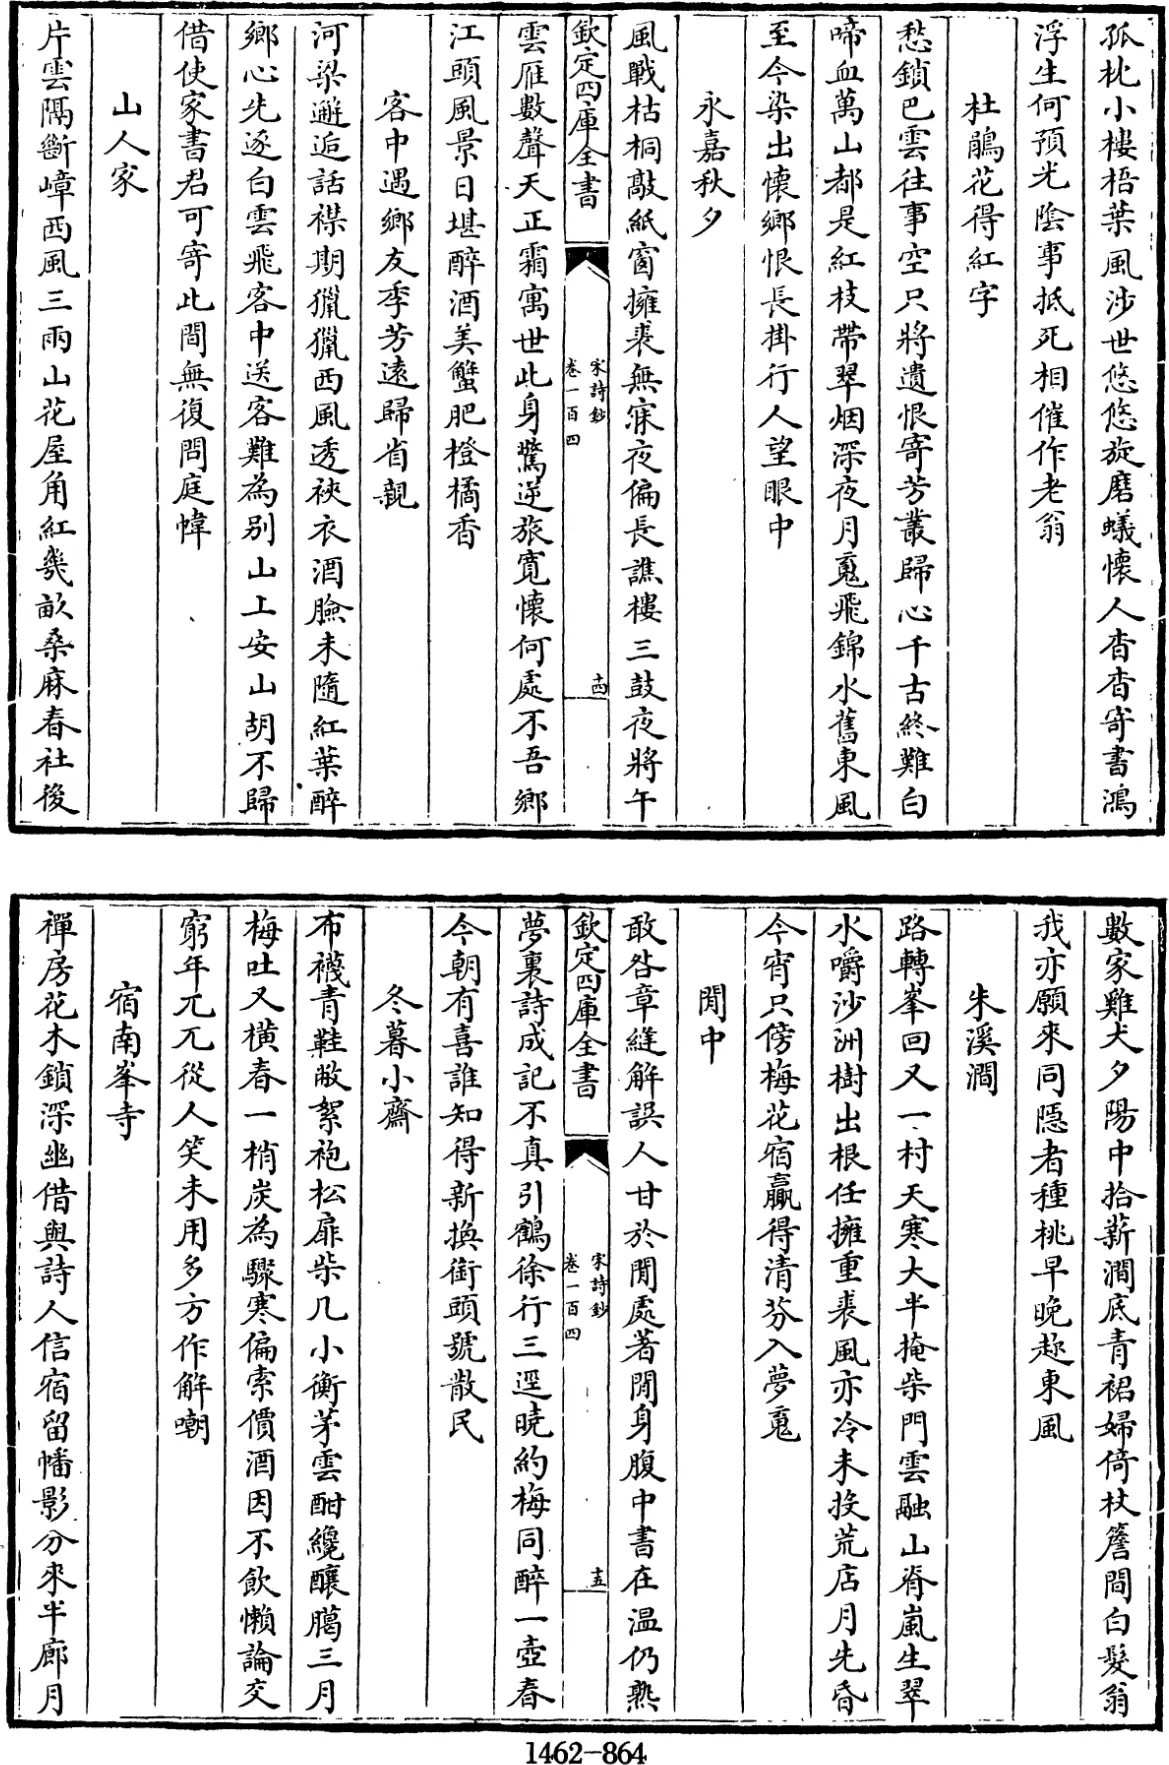 孤枕小樓梧葉風涉世悠悠旋磨蟻懷人杳杳寄書鴻
浮生何預光陰事抵死相催作老翁
杜鵑花得紅字
愁鎖巴雲往事空只將遺恨寄芳叢歸心千古終難白
啼血萬山都是紅枝帶翠烟深夜月䰟飛錦水舊東風
至今染出懷鄉恨長掛行人望眼中
永嘉秋夕
風戰枯桐敲紙窗擁裘無寐夜偏長譙樓三鼓夜將午
欽定四庫全書
宋詩鈔
卷一百四
十四
雲雁數聲天正霜寓世此身驚逆旅寛懷何處不吾鄉
江頭風景日堪醉酒美蟹肥橙橘香
客中遇鄉友季芳遠歸省親
河梁邂逅話襟期獵獵西風透裌衣酒臉未隨紅葉醉
鄉心先逐白雲飛客中送客難為别山上安山胡不歸
借使家書君可寄此間無復問庭幃
山人家
片雲隔斷嶂西風三兩山花屋角紅幾畝桑麻春社後
數家雞犬夕陽中拾薪澗底青裙婦倚杖簷間白髮翁
我亦願來同隠者種桃早晚趂東風
朱溪澗
路轉峯回又一村天寒大半掩柴門雲融山脊嵐生翠
水嚼沙洲樹出根任擁重裘風亦冷未投荒店月先昏
今宵只傍梅花宿贏得清芬入夢䰟
閒中
敢咎章縫解誤人甘於閒處著閒身腹中書在温仍熟
欽定四庫全書
宋詩鈔
卷一百四
十五
夢裏詩成記不真引鶴徐行三逕曉約梅同醉一壺春
今朝有喜誰知得新換銜頭號散民
冬暮小齋
布襪青鞋敝絮袍松扉柴几小衡茅雲酣纔釀臈三月
梅吐又橫春一梢炭為驟寒偏索價酒因不飲懶論交
窮年兀兀從人笑未用多方作解嘲
宿南峯寺
禪房花木鎖深幽借與詩人信宿留幡影分來半廊月
1462-864